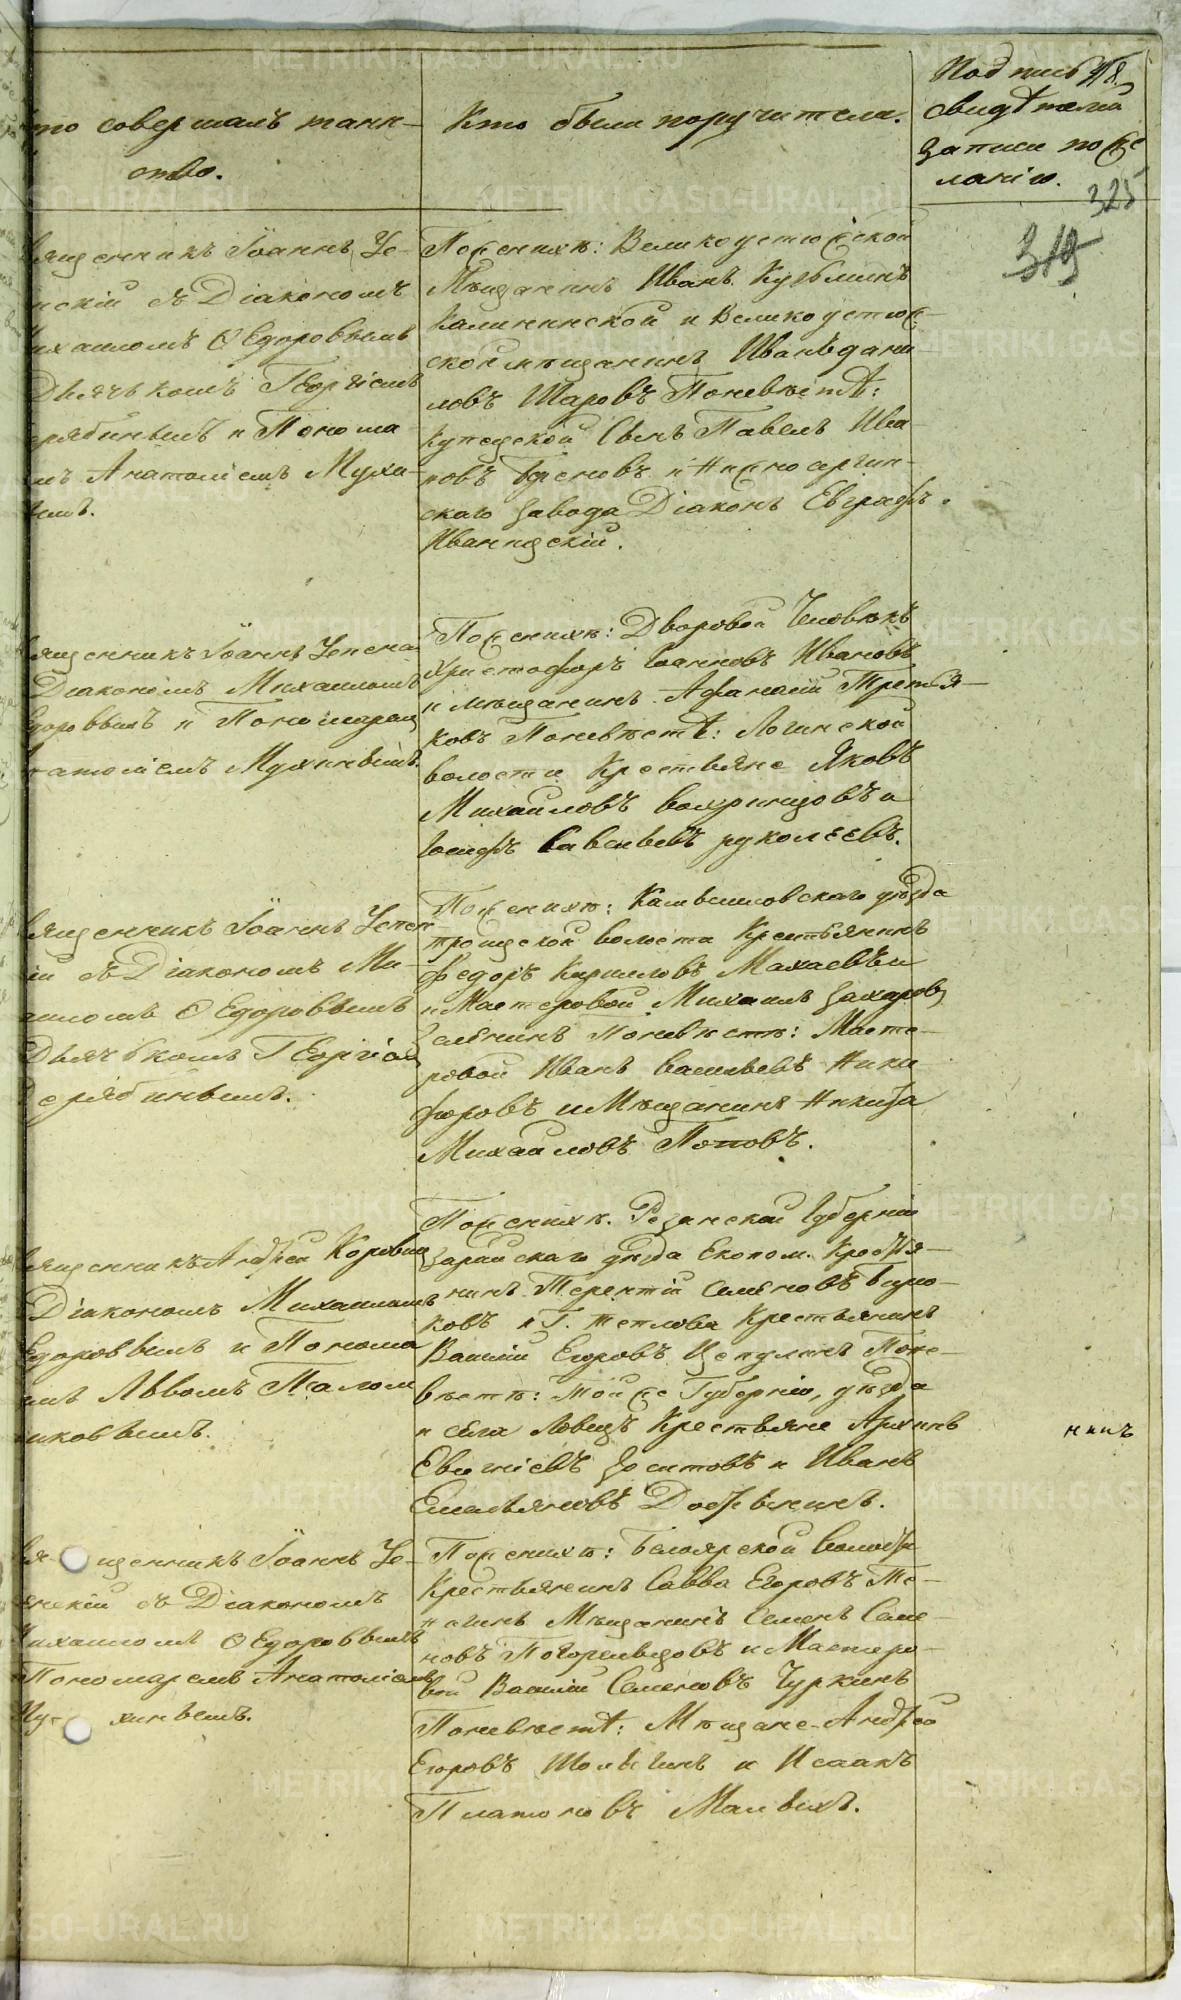 то совершалъ таин-
ство.
Кто были поручители.
Подпись
свидѣтелей
записи по же
ланію.
325
319
ященникъ Іоаннъ Успе-
нскій съ Діакономъ
ихаиломъ Ѳедоровымъ
Дьячькомъ Георгіемъ
ерябинымъ и Понома
мъ Анатоліемъ Мухи-
нымъ.
По женихѣ: Великоустюжской
Мѣщанинъ Иванъ Кузьминъ
Калининской и Великоустюж-
ской мѣщанинъ Иванъ Дани-
ловъ Шаровъ По невѣстѣ:
Купеческой Сынъ Павелъ Ива
новъ и Нижносергин-
скаго завода Діаконъ Евграфъ
Иваницкій.
ященникъ Іоаннъ Успенск
Діакономъ Михаиломъ
едоровымъ и Пономаремъ
натоліемъ Мухинымъ.
По женихѣ: Дворовой Человѣкъ
Христофоръ Іоанновъ Ивановъ
и мѣщанинъ Афанасій Третья-
ковъ По невѣстѣ: Логинской
волости Крестьяне Яковъ
Михайловъ Вахринцовъ и
Іосифъ Савельевъ Руколеевъ.
ященникъ Іоаннъ Успен
ій съ Діакономъ Ми-
хаиломъ Ѳедоровымъ
Дьячькомъ Георгіем
ерябинымъ.
По женихѣ: Камышловскаго уѣзда
Троицкой волости Крестьянинъ
Федоръ Кириловъ Махаевъ и
и Мастеровой Михаилъ Захаровъ
По невѣстѣ: Масте-
ровой Иванъ Васильевъ Ники
форовъ и Мѣщанинъ Никита
Михайловъ Поповъ.
ященникъ Андрей Коровин
Діакономъ Михаиломъ
едоровымъ и Понома
мъ Львомъ Псалом
иковымъ.
По женихѣ. Резанской Губерніи
Зарайскаго уѣзда Економ. Крестья-
нинъ Терентій Семеновъ Бирю-
ковъ и Г. Теплова Крестьянинъ
Василій Егоровъ Цепулинъ По не-
вѣстѣ: Той же Губерніи, уѣзда
и села Ловецъ Крестьяне Архипъ
Евсигніевъ Зоситовъ и Иванъ
Емельяновъ
нинъ
вя- щенникъ Іоаннъ Ус-
пенскій съ Діакономъ
ихаиломъ Ѳедоровымъ
Пономаремъ Анатоліемъ
Му- хинымъ.
По женихѣ: Белоярской Волости
Крестьянинъ Савва Егоровъ Те-
нигинъ Мѣщанинъ Семенъ Семе-
новъ Погорельцовъ и Мастеро-
вой Василій Семеновъ Чуркинъ
По невѣстѣ: Мѣщане Андрей
Егоровъ Шолыгинъ и Исаакъ
Платоновъ Малыхъ.